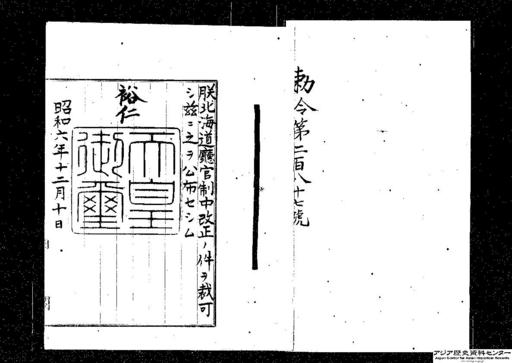 勅令第二百八十七號
朕北海道廳官制中改正ノ件ヲ裁可
シ茲ニ之ヲ公布セシム
裕仁
天皇
御璽
昭和六年十二月十日
アジア歴史資料センター
Japan Center for Asian Historical Records